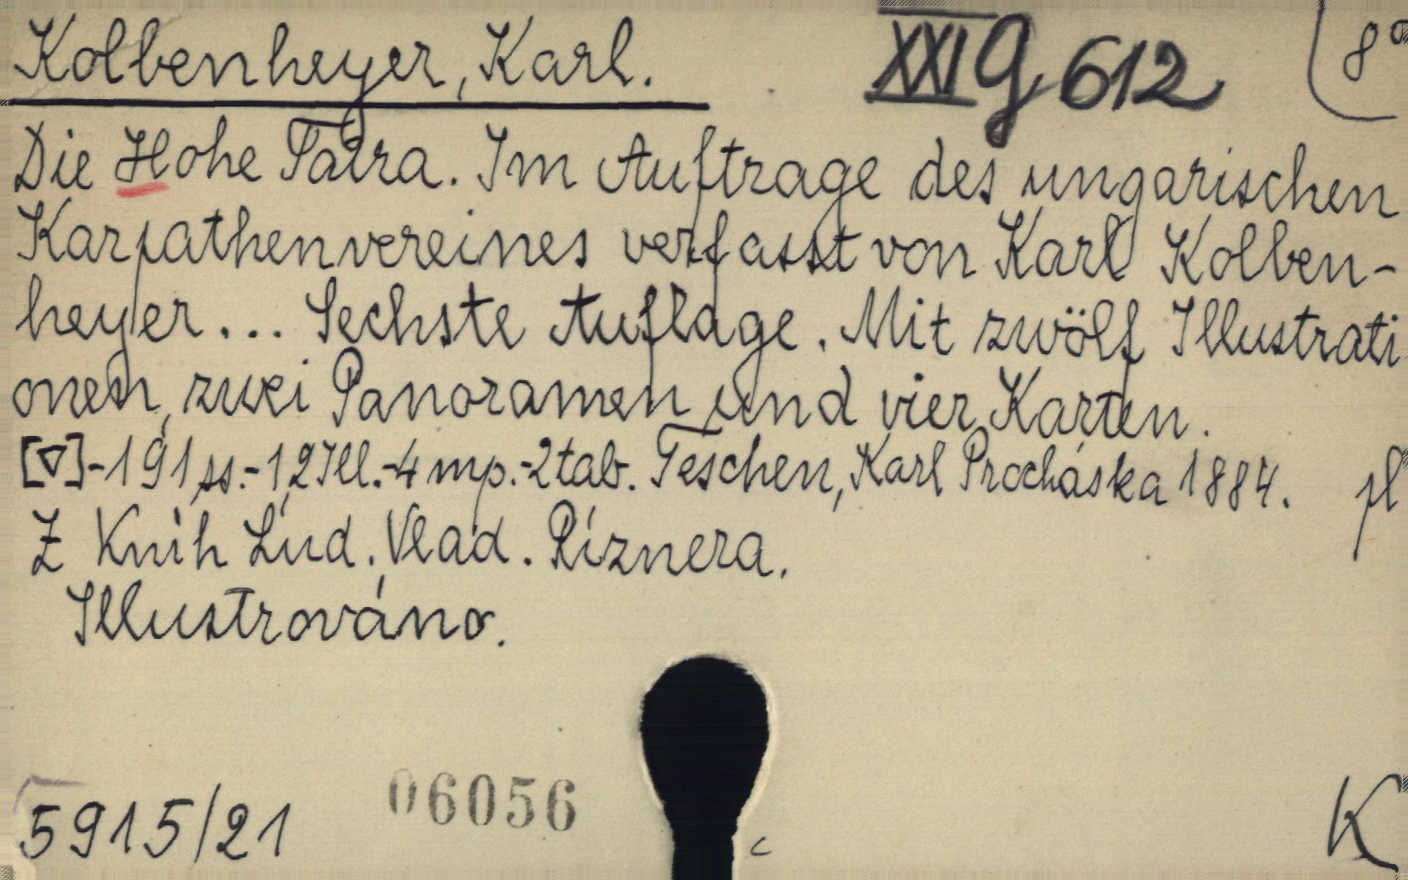 Kolbenheyer, Karl. XXI G 612 8°
Die Hohe Tatra. Im Auftrage des ungarischen
Karpathenvereines verfasst von Karl Kolben-
heyer... Sechste Auflage. Mit zwölf Illustrati
onen, zwei Panoramen und vier Karten.
[▽]-191 ss.-12 Ill.-4 mp.-2 tab. Teschen, Karl Procháska 1884. pl
Z Knih Lud. Vlad. Riznera.
Illustrováno.
5915/21 06056 c K